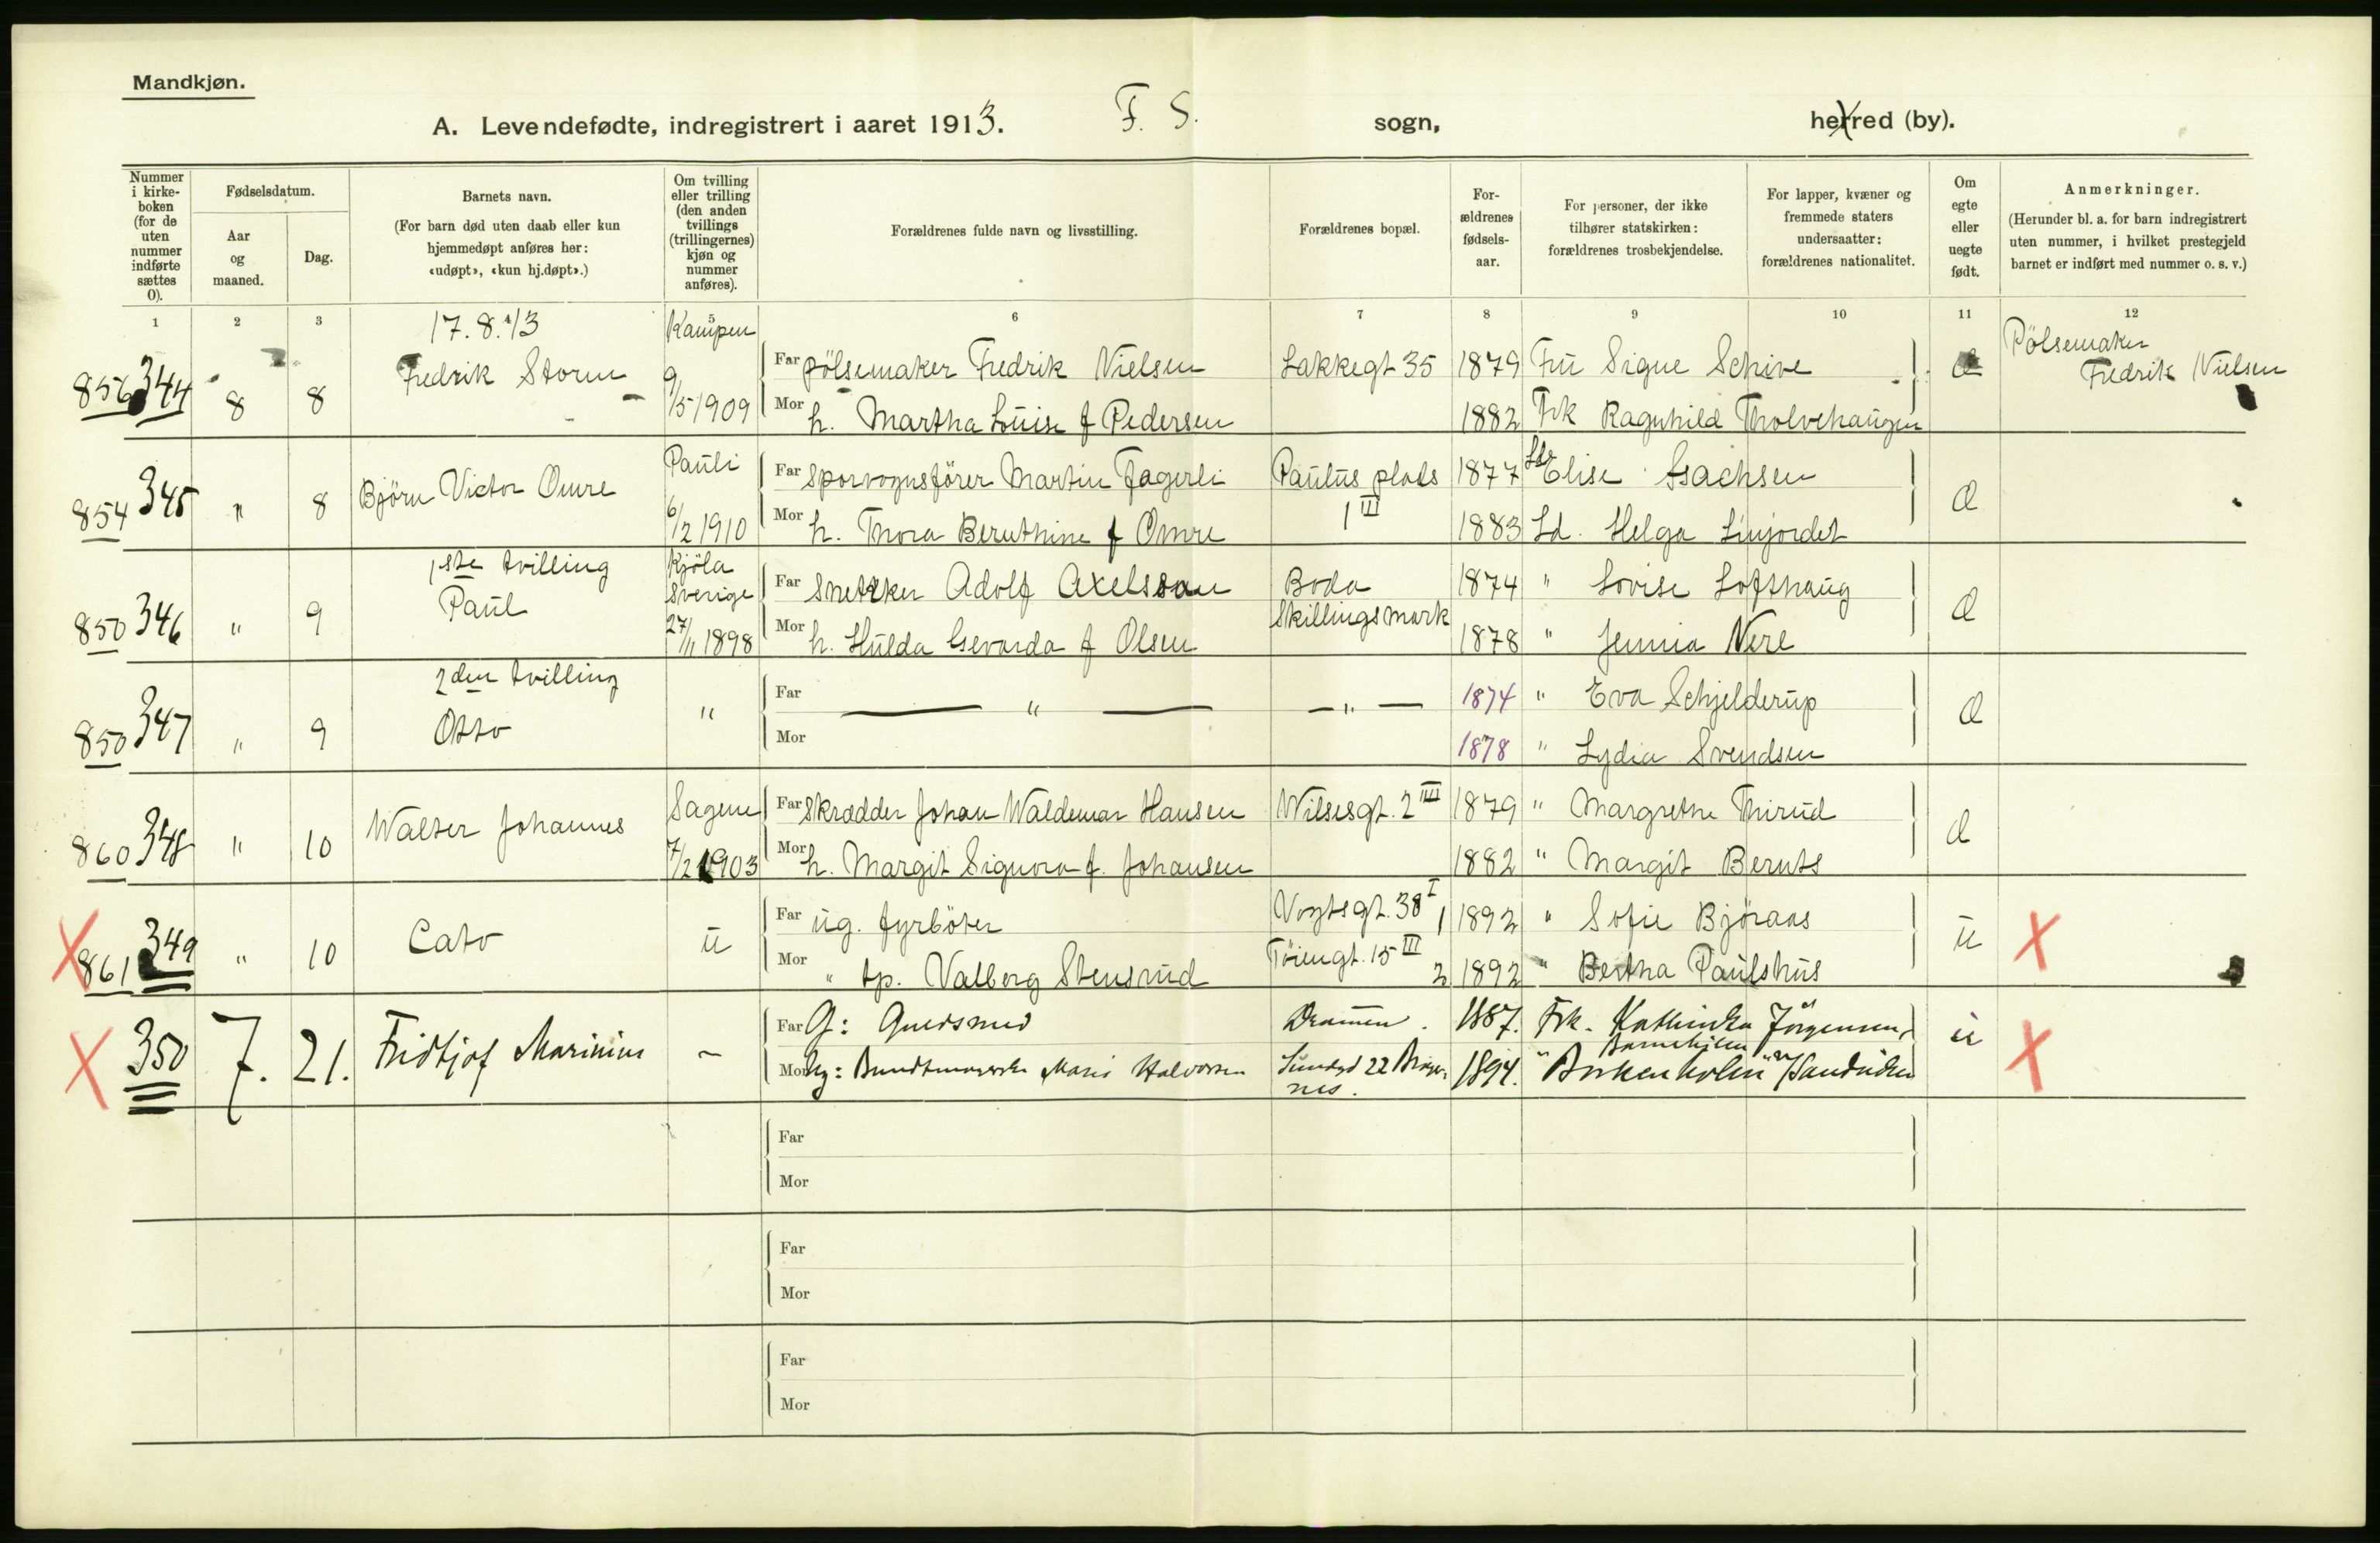 Mandkjøn.
A. Levendefødte, indregistrert i aaret 1913. F. S. sogn, herred (by).
Nummer i kirke-boken (for de uten nummer indførte sættes 0).
Fødselsdatum.
Aar og maaned.
Dag.
Barnets navn.
(For barn død uten daab eller kun hjemmedøpt anføres her: «udøpt», «kun hj.døpt».)
Om tvilling eller trilling (den anden tvillings (trillingernes) kjøn og nummer anføres).
Forældrenes fulde navn og livsstilling.
Forældrenes bopæl.
For-ældrenes fødsels-aar.
For personer, der ikke tilhører statskirken: forældrenes trosbekjendelse.
For lapper, kvæner og fremmede staters undersaatter: forældrenes nationalitet.
Om egte eller uegte født.
Anmerkninger.
(Herunder bl. a. for barn indregistrert uten nummer, i hvilket prestegjeld barnet er indført med nummer o. s. v.)
1 2 3 4 5 6 7 8 9 10 11 12
17.8.13 Kampen
856 344 8 8 Fredrik Storm 9/5 1909
Far pölsemaker Fredrik Nielsen Lakkegt 35 1879 Fru Signe Schive
Mor h. Martha Louise f Pedersen 1882 Frk Ragnhild Tholvehaugen
Pölsemaker Fredrik Nielsen
854 345 " 8 Björn Victor Omre Pauli 6/2 1910
Far Sporvognsförer Martin Fagerli Paulus plads 1 III 1877 Elise Isachsen
Mor h. Thora Bernthine f Omre 1883 Ld. Helga Linjordet
Æ
1ste tvilling
850 346 " 9 Paul Kjöla Sverige 27/11 1898
Far Snekker Adolf Axelsson Boda Skillingsmark 1874 " Lovise Lofthaug
Mor h. Hulda Gevarda f Olsen 1878 " Jennia Nere
Æ
2den tvilling
850 347 " 9 Otto "
Far — " — — " — 1874 " Eva Schjelderup
Mor 1878 " Lydia Svendsen
Æ
860 348 " 10 Walter Johannes Sagene 7/2 1903
Far Skrædder Johan Waldemar Hansen Wilsesgt. 2 III 1879 " Margrethe Thirud
Mor h. Margit Signora f. Johansen 1882 " Margit Bernts
Æ
X 861 349 " 10 Cato u
Far ug. fyrböter Vogtsgt. 38 I 1 1892 " Sofie Björaas
Mor " tp. Valborg Stensrud Töiengt. 15 III 2 1892 " Bertha Paulshus
u X
X 350 7. 21. Fridtjof Marinius –
Far G: Guldsmed Drammen. 1887. Frk. Kathinka Jörgensen,
Mor Ug: Bundtmagerske Marie Halvorsen 22 Bragernes. 1894. "
u X
Far
Mor
Far
Mor
Far
Mor